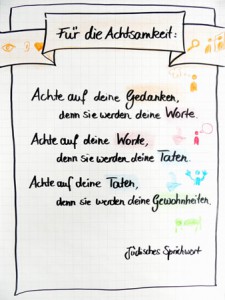 Für die Achtsamkeit:
Achte auf deine Gedanken,
denn sie werden deine Worte.
Achte auf deine Worte,
denn sie werden deine Taten.
Achte auf deine Taten,
denn sie werden deine Gewohnheiten.
Jüdisches Sprichwort